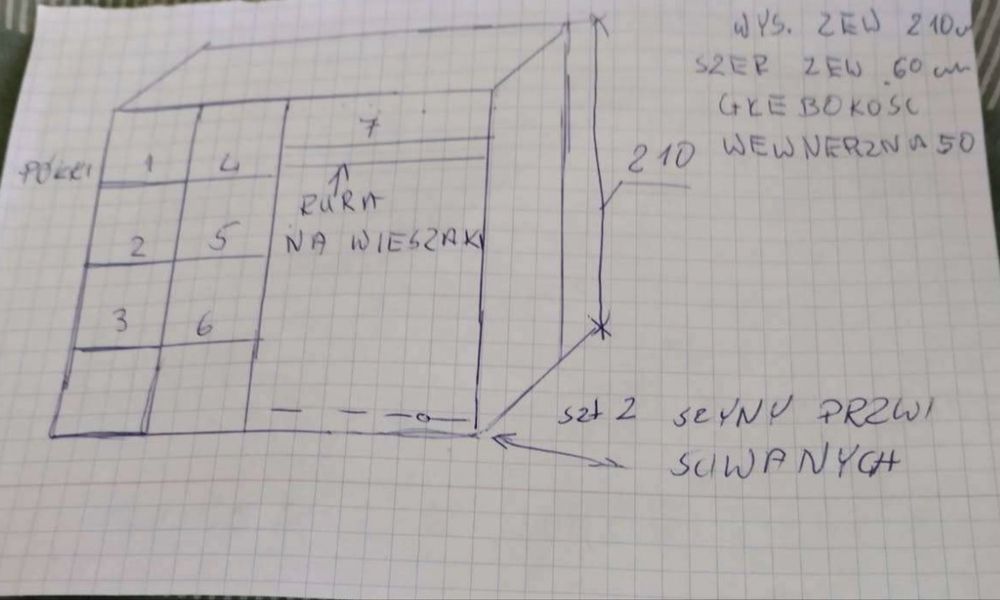 WYS. ZEW 210
SZER ZEW 60 cm
GŁEBOKOŚĆ
WEWNERZNA 50
210
7
PÓŁKI 1 4
RURA
NA WIESZAKI
2 5
3 6
szt 2 SZYNY PRZWI
SUWANYCH